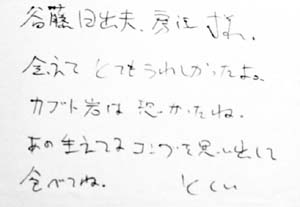 谷藤日出夫、房江 さま。
会えて とてもうれしかったよ。
カブト岩は 恐かったね。
あの生えてるコンブを思い出して
食べてね。